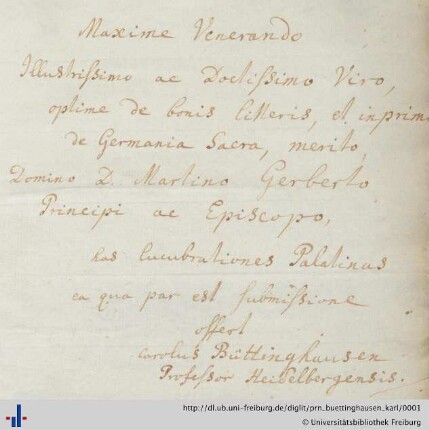 Maxime Venerando
Illustrissimo ac Doctissimo Viro,
optime de bonis litteris, et inprim
de Germania Sacra, merito,
Domino D. Martino Gerberto
Principi ac Episcopo,
has lucubrationes Palatinas
ea qua par est submissione
offert
Carolus Büttinghausen
Professor Heidelbergensis.
http://dl.ub.uni-freiburg.de/diglit/prn_buettinghausen_karl/0001
© Universitätsbibliothek Freiburg